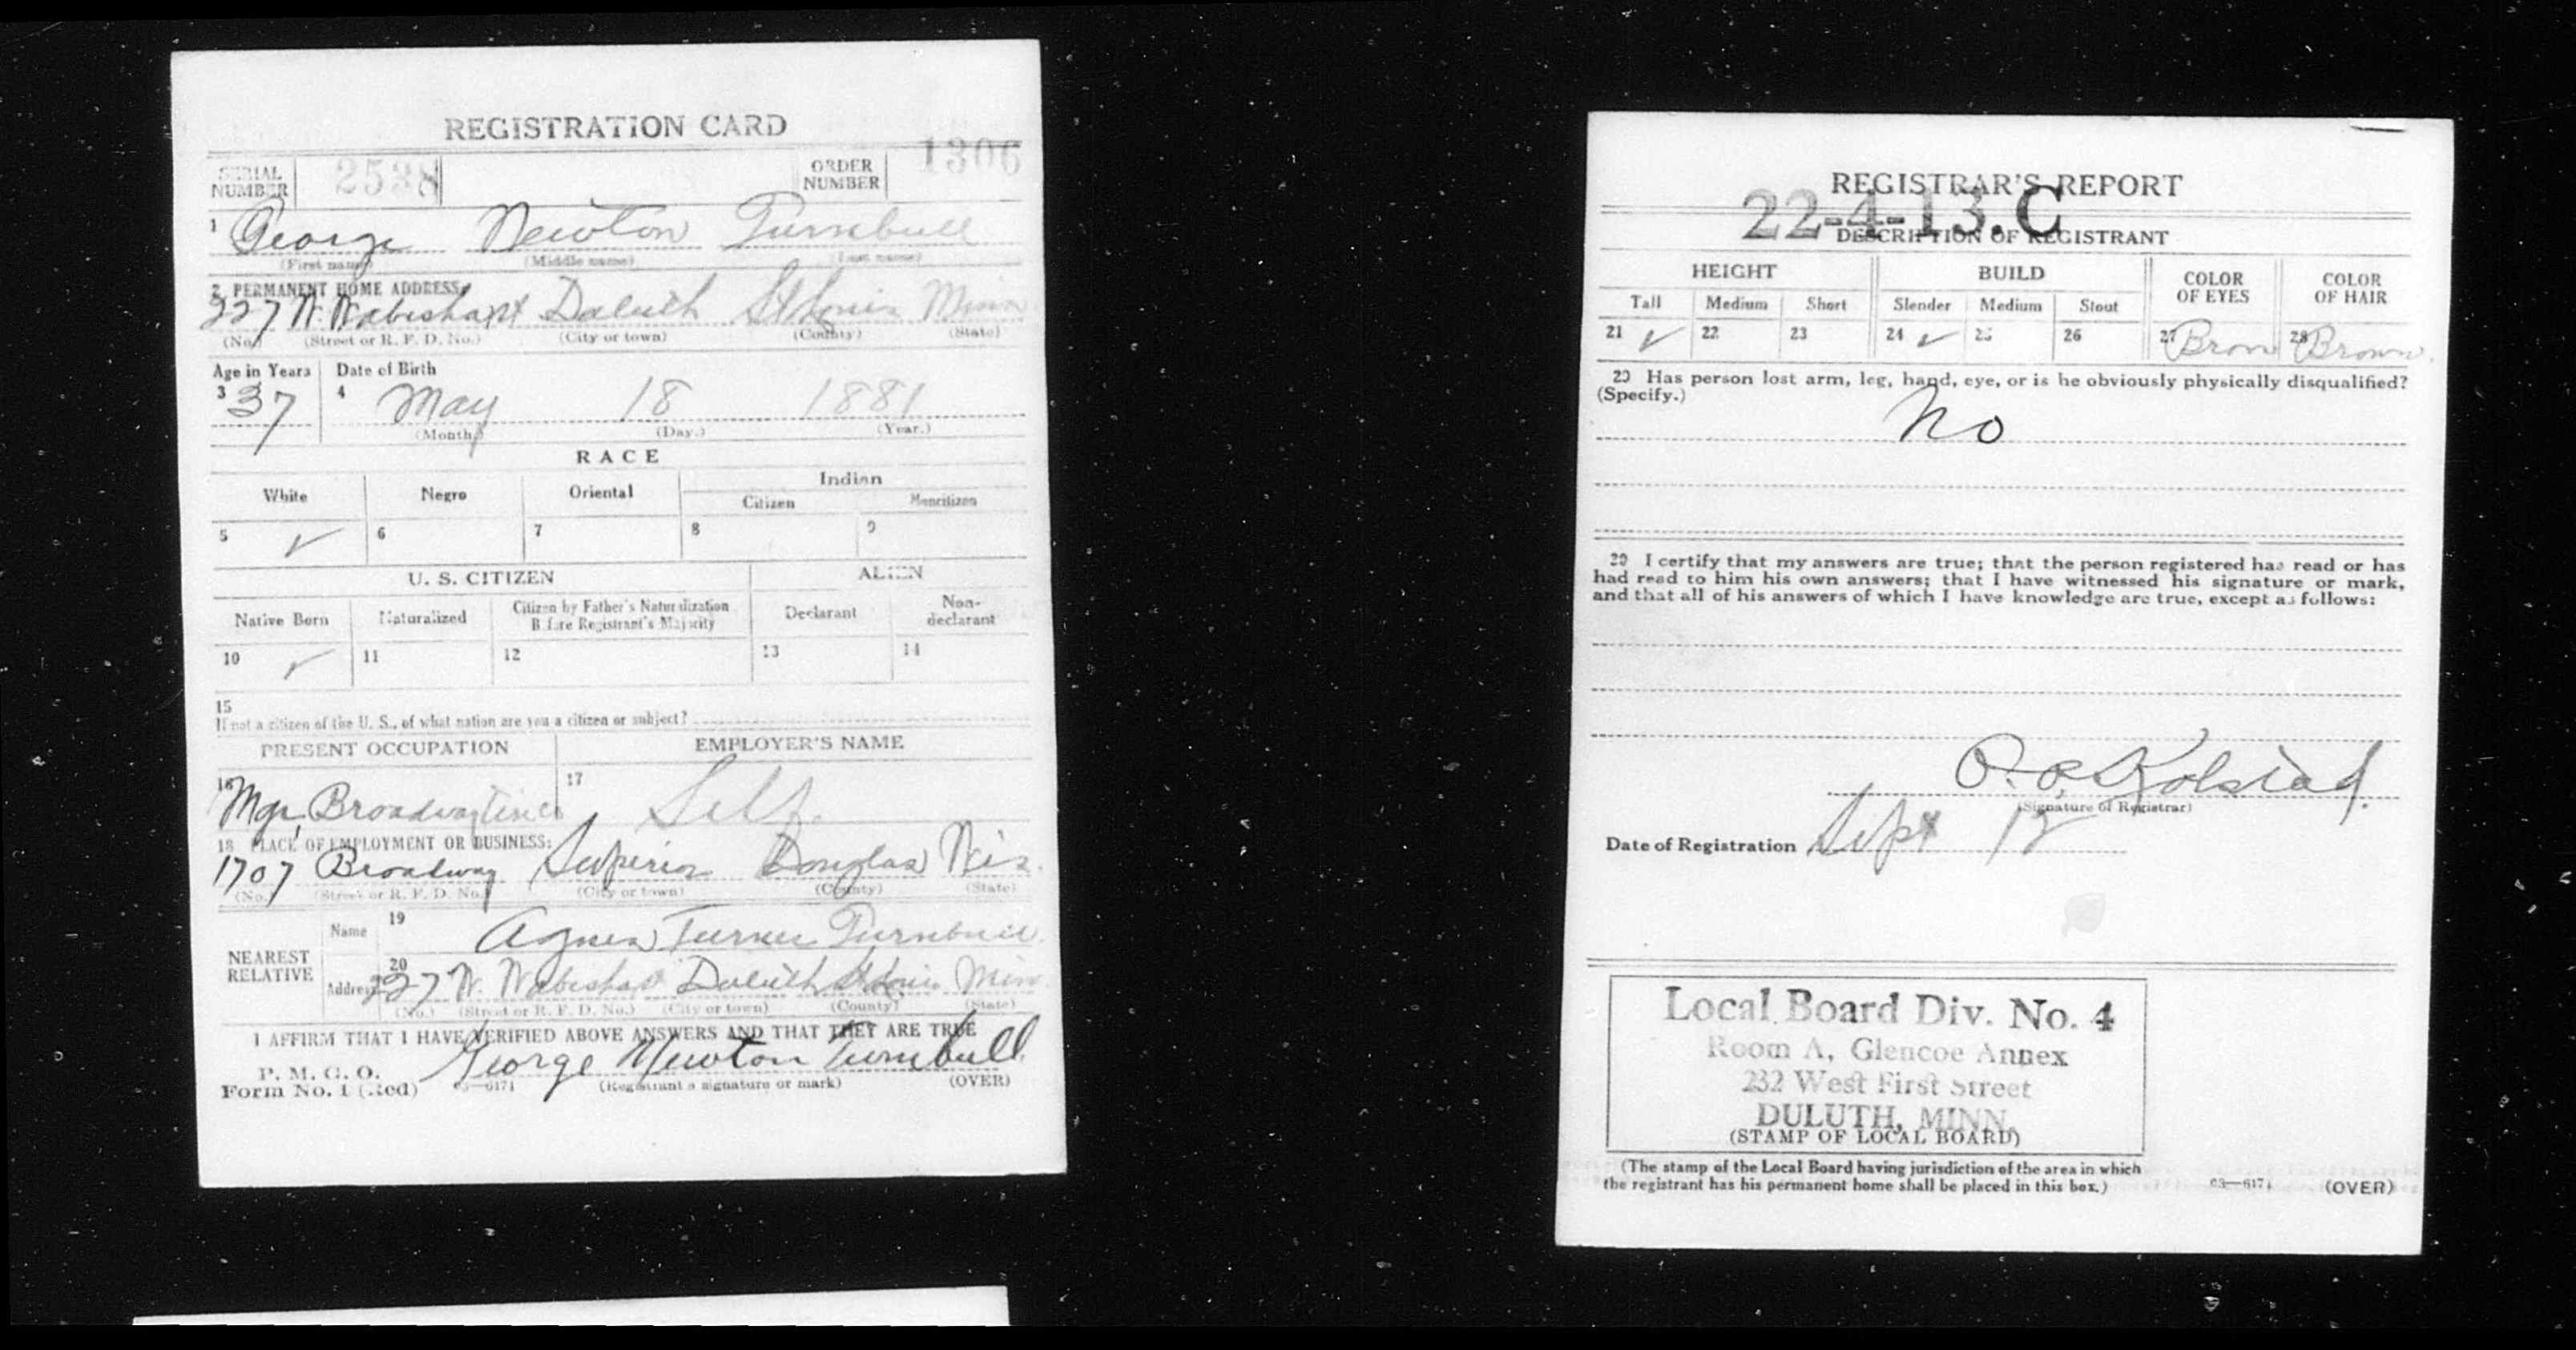 REGISTRATION CARD
SERIAL NUMBER 2538 ORDER NUMBER 1306
1 George Newton Turnbull
(First name) (Middle name) (Last name)
2 PERMANENT HOME ADDRESS:
227 W. Wabasha st Duluth St Louis Minn
(No.) (Street or R. F. D. No.) (City or town) (County) (State)
Age in Years Date of Birth
3 37 4 May 18 1881
(Month.) (Day.) (Year.)
RACE
White Negro Oriental Indian
Citizen Noncitizen
5 ✓ 6 7 8 9
U. S. CITIZEN ALIEN
Native Born Naturalized Citizen by Father's Naturalization Before Registrant's Majority Declarant Non-declarant
10 ✓ 11 12 13 14
15
If not a citizen of the U. S., of what nation are you a citizen or subject?
PRESENT OCCUPATION EMPLOYER'S NAME
16 Mgr. Broadway 17 Self.
18 PLACE OF EMPLOYMENT OR BUSINESS:
1707 Broadway Superior Douglas Wis.
(No.) (Street or R. F. D. No.) (City or town) (County) (State)
NEAREST RELATIVE
Name 19 Agnes Turner Turnbull
Address 20 227 W. Wabasha Duluth St Louis Minn
(No.) (Street or R. F. D. No.) (City or town) (County) (State)
I AFFIRM THAT I HAVE VERIFIED ABOVE ANSWERS AND THAT THEY ARE TRUE
P. M. G. O.
Form No. 1 (Red) 03—6171 George Newton Turnbull
(Registrant's signature or mark) (OVER)
REGISTRAR'S REPORT
22-4-13. C
DESCRIPTION OF REGISTRANT
HEIGHT BUILD COLOR OF EYES COLOR OF HAIR
Tall Medium Short Slender Medium Stout
21 ✓ 22 23 24 ✓ 25 26 27 Brown 28 Brown
29 Has person lost arm, leg, hand, eye, or is he obviously physically disqualified?
(Specify.)
No
30 I certify that my answers are true; that the person registered has read or has
had read to him his own answers; that I have witnessed his signature or mark,
and that all of his answers of which I have knowledge are true, except as follows:
Kolstad
(Signature of Registrar)
Date of Registration Sept 12
Local Board Div. No. 4
Room A, Glencoe Annex
232 West First Street
DULUTH, MINN.
(STAMP OF LOCAL BOARD)
(The stamp of the Local Board having jurisdiction of the area in which
the registrant has his permanent home shall be placed in this box.)
03—6171 (OVER)